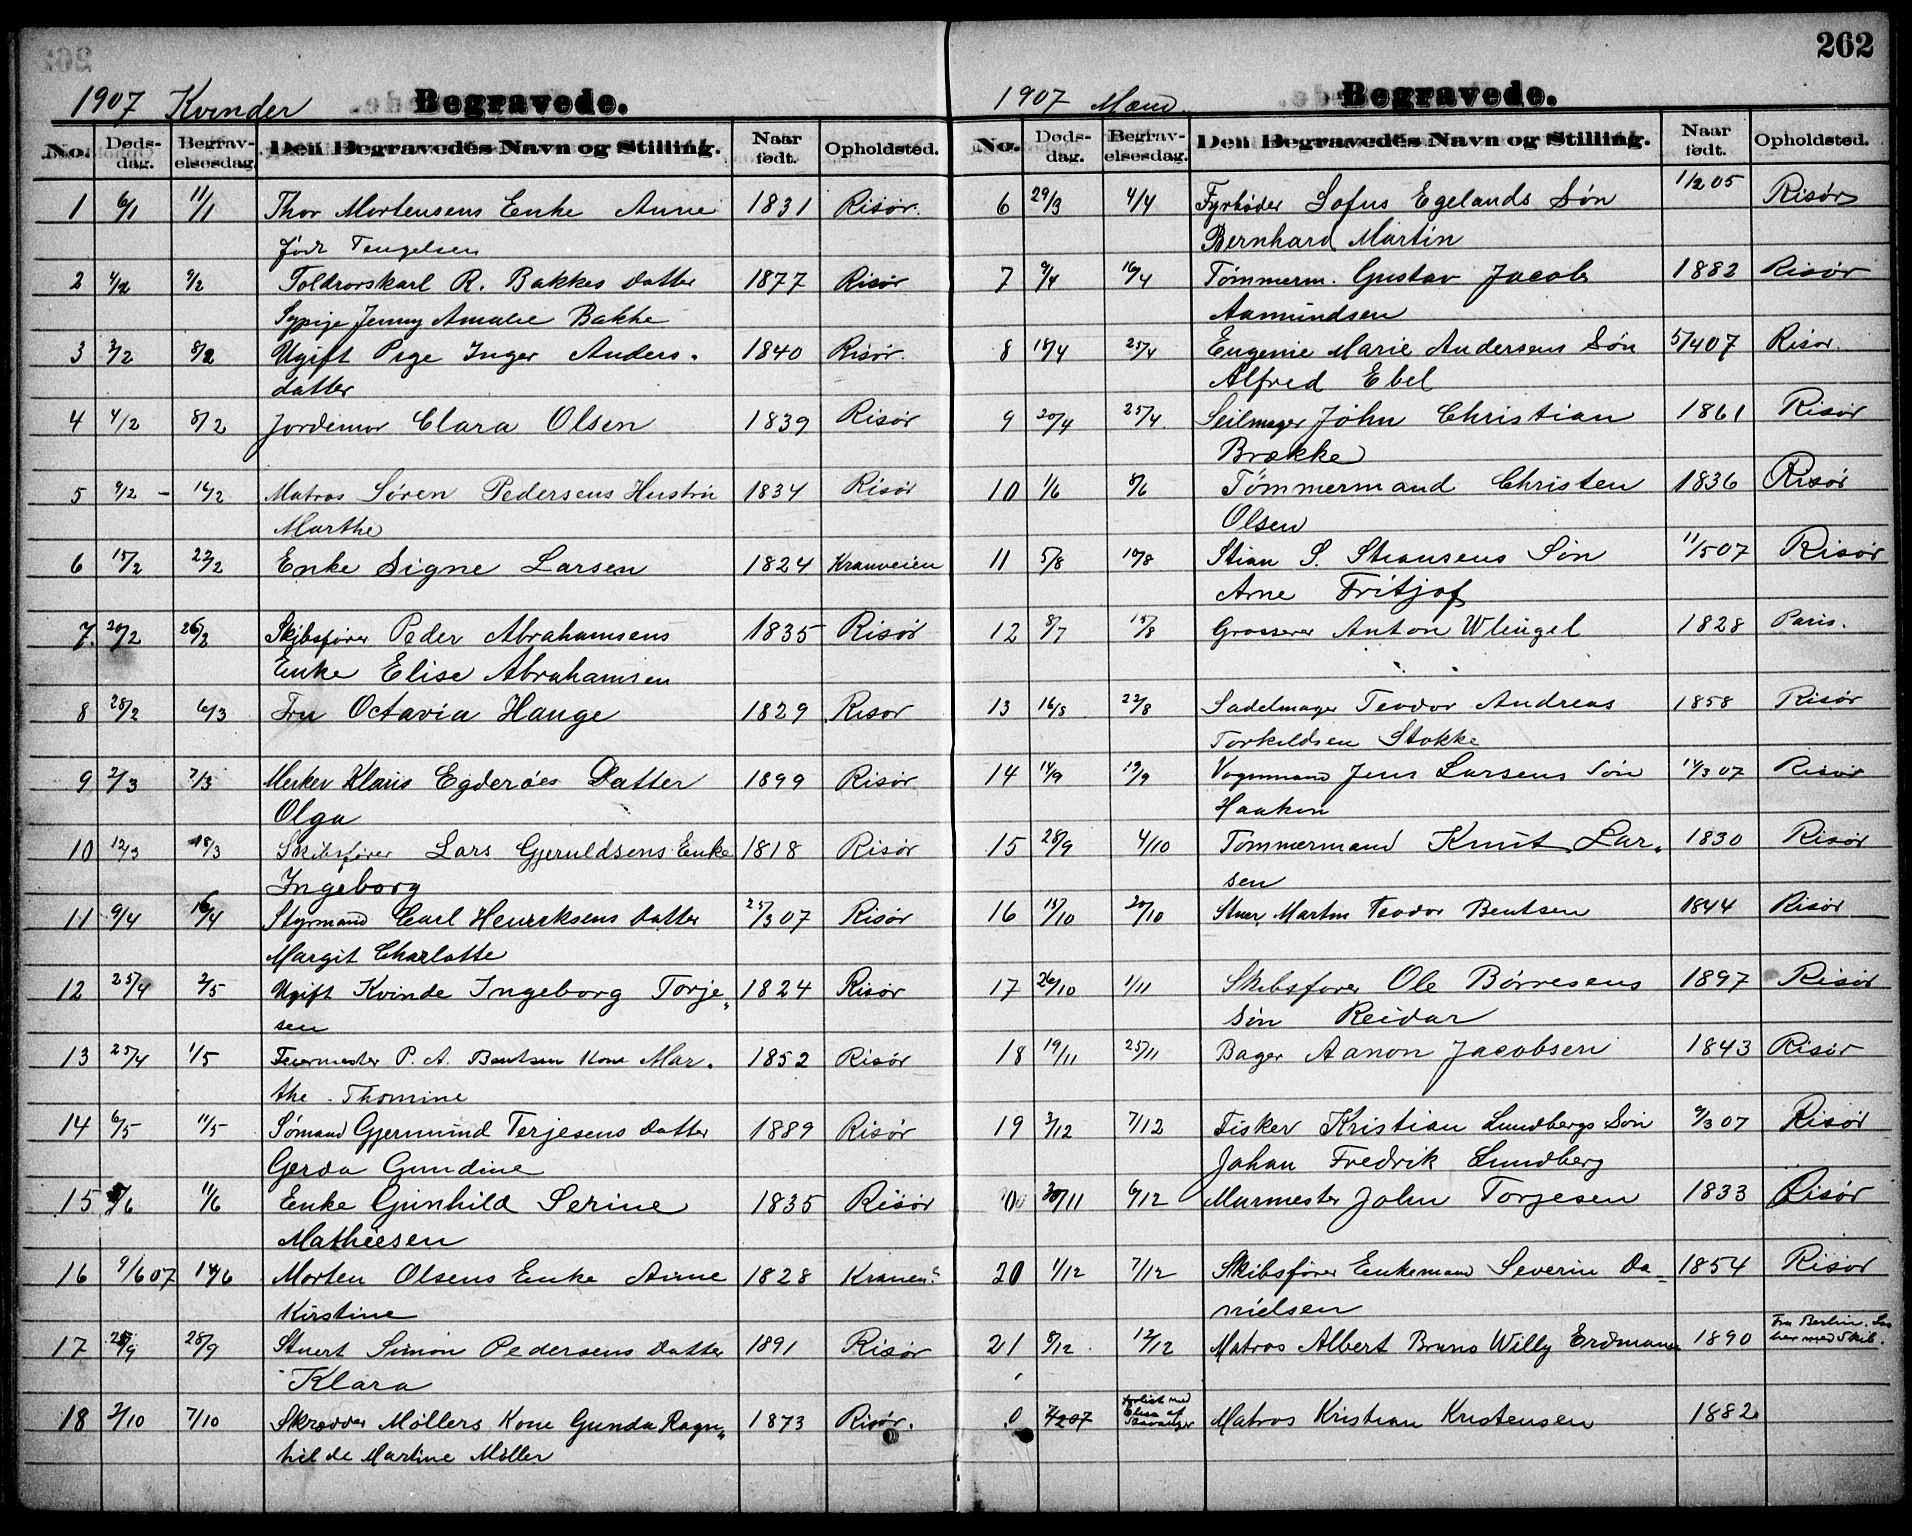 262
1907 Kvinder Begravede.
No. Døds-dag. Begrav-elsesdag. Den Begravedes Navn og Stilling. Naar født. Opholdsted.
1 6/1 11/1 Thor Mortensens Enke Anne 1831 Risør.
født Tengelsen
2 4/2 9/2 Toldrorskarl R. Bakkes Datter 1877 Risør
Sypige Jenny Amalie Bakke
3 3/2 8/2 Ugift Pige Inger Anders- 1840 Risør.
datter
4 4/2 8/2 Jordemor Clara Olsen 1839 Risør
5 9/2 - 16/2 Matros Søren Pedersens Hustru 1834 Risør
Marthe
6 15/2 22/2 Enke Signe Larsen 1824 Kranveien
7. 20/2 26/2 Skibsfører Peder Abrahamsens 1835 Risør
Enke Elise Abrahamsen
8 28/2 6/3 Fru Octavia Hauge 1829 Risør
9 2/3 7/3 Klaus Egderøes Datter 1899 Risør
Olga
10 12/3 18/3 Skibsfører Lars Gjeruldsens Enke 1818 Risør
Ingeborg
11 9/4 16/4 Styrmand Carl Henriksens Datter 25/3 07 Risør
Margit Charlotte
12 25/4 2/5 Ugift Kvinde Ingeborg Torje- 1824 Risør
sen
13 25/4 1/5 Feiermester P. A. Bentsen Kone Mar- 1852 Risør
the Thomine
14 6/5 11/5 Sømand Gjermund Terjesens Datter 1889 Risør
Gerda Gundine
15 /6 11/6 Enke Gunhild Serine 1835 Risør
Mathiesen
16 9/6 07 14/6 Morten Olsens Enke Anne 1828 Kranen
Kirstine
17 /9 28/9 Stuert Simon Pedersens Datter 1891 Risør
Klara
18 2/10 7/10 Skrædder Møllers Kone Gunda Ragn- 1873 Risør.
hilde Martine Møller
1907 Mænd Begravede.
No. Døds-dag. Begrav-elsesdag. Den Begravedes Navn og Stilling. Naar født. Opholdsted.
6 29/3 4/4 Fyrbøder Sofus Egelands Søn 1/2 05 Risør
Bernhard Martin
7 9/4 16/4 Tømmerm. Gustav Jacob 1882 Risør
Aamundsen
8 18/4 25/4 Eugenie Marie Andersens Søn 5/4 07 Risør.
Alfred Ebel
9 20/4 25/4. Seilmager John Christian 1861 Risør
Brække
10 1/6 8/6 Tømmermand Christen 1836 Risør
Olsen
11 5/8 10/8 Stian S. Stiansens Søn 11/5 07 Risør
Arne Fritjof
12 8/7 15/8 Grosserer Anton Wliugel 1828 Paris.
13 16/8 22/8 Sadelmager Teodor Andreas 1858 Risør
Torkildsen Stokke
14 14/9 19/9 Vognmand Jens Larsens Søn 14/3 07 Risør
Haakon
15 28/9 4/10 Tømmermand Knut Lar- 1830 Risør
sen
16 15/10 20/10 Martin Teodor Bentsen 1844 Risør
17 26/10 1/11 Skibsfører Ole Børresens 1897 Risør
Søn Reidar
18 19/11 25/11 Bager Aanon Jacobsen 1843 Risør
19 2/12 7/12 Fisker Kristian Lundbergs Søn 9/3 07 Risør
Johan Fredrik Lundberg
30/11 6/12 Murmester John Torjesen 1833 Risør
20 1/12 7/12 Skibsfører Enkemand Severin Da- 1854 Risør
nielsen
21 8/12 12/12 Matros Albert Bruno Willy Erdmann 1890 Fra Berlin.
her med Skib.
0 7/2 07 forlist med Elisa af Stavanger Matros Kristian Kristensen 1882